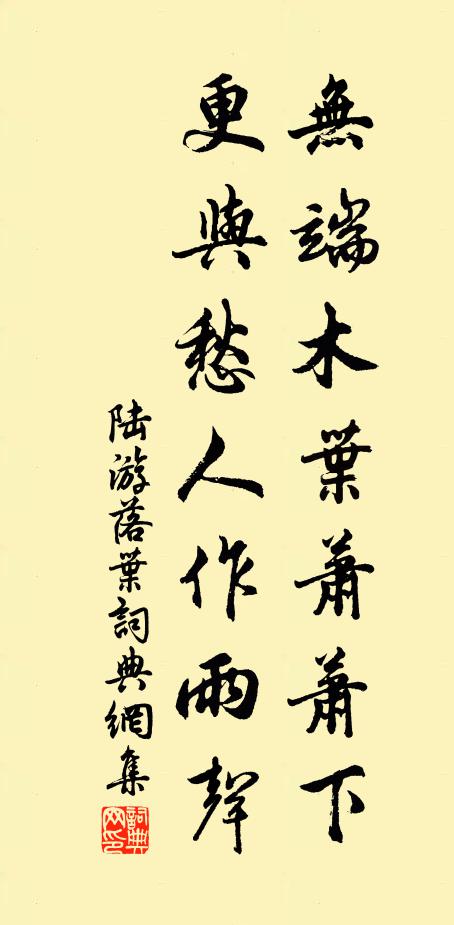 無端木葉蕭蕭下
更與愁人作雨聲
陆游落葉詞典網集
詞典网印